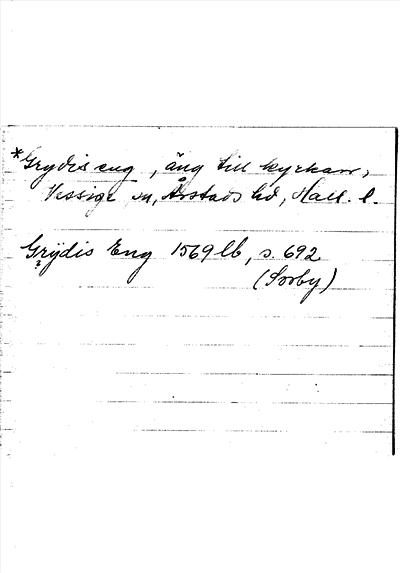 *Grydis eng, äng till kyrkan,
Vessige sn, Årstads hd, Hall. l.
Grÿdis Eng 1569 lb, s. 692
(Sorby)